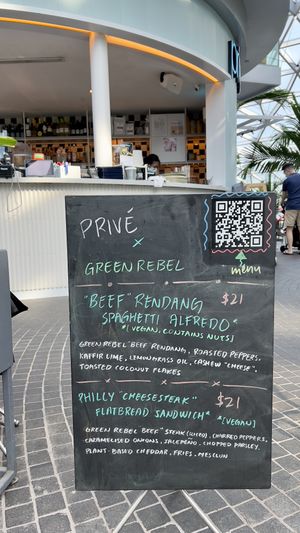 PRIVÉ
x
GREEN REBEL
menu
"BEEF" RENDANG $21
SPAGHETTI ALFREDO*
*[VEGAN, CONTAINS NUTS]
GREEN REBEL "BEEF" RENDANG, ROASTED PEPPERS,
KAFFIR LIME, LEMONGRASS OIL, CASHEW "CHEESE",
TOASTED COCONUT FLAKES
PHILLY "CHEESESTEAK" $21
FLATBREAD SANDWICH* *[VEGAN]
GREEN REBEL BEEF STEAK (SLICED), CHARRED PEPPERS,
CARAMELISED ONIONS, JALAPEÑO, CHOPPED PARSLEY,
PLANT-BASED CHEDDAR, FRIES, MESCLUN